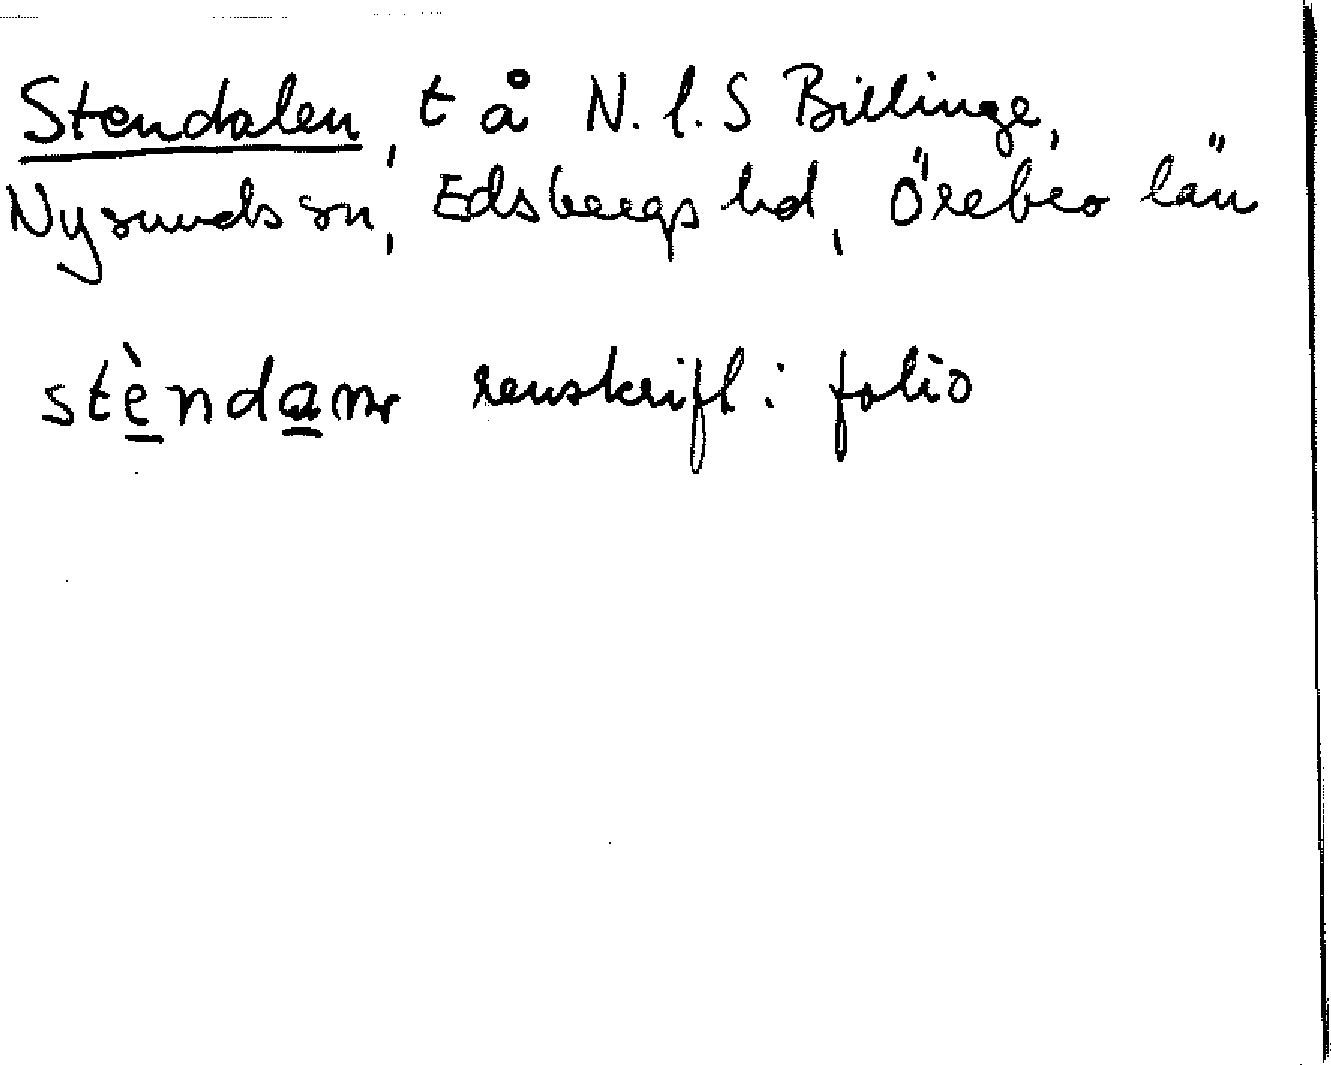 Stendalen, t å N. l. S Billinge,
Nysunds sn, Edsbergs hd, Örebro län
renskrift i folio